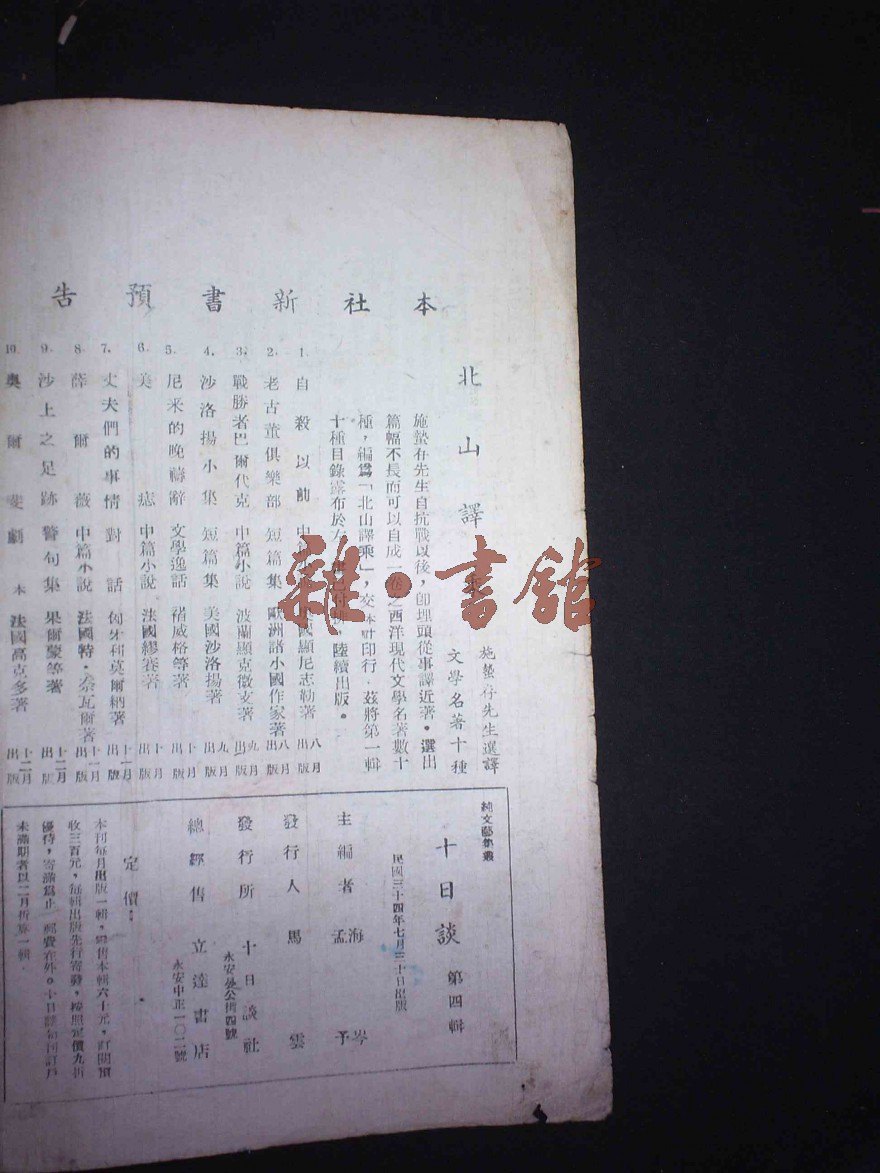 本社新書預告
北山譯乘
施蟄存先生選譯
文學名著十種
施蟄存先生自抗戰以後，卽埋頭從事譯近著。選出
篇幅不長而可以自成一卷之西洋現代文學名著數十
種，編爲「北山譯乘」，交本社印行．茲將第一輯
十種目錄露布於左 陸續出版。
1. 自殺以前 國顯尼志勒著 八月出版
2. 老古董俱樂部 短篇集 歐洲諸小國作家著 八月出版
3. 戰勝者巴爾代克 中篇小說 波蘭顯克微支著 九月出版
4. 沙洛揚小集 短篇集 美國沙洛揚著 九月出版
5. 尼采的晚禱辭 文學逸話 褚威格等著 十月出版
6. 美 痣 中篇小說 法國繆賽著 十月出版
7. 丈夫們的事情 對話 匈牙利莫爾納著 十一月出版
8. 薛爾薇 中篇小說 法國特·奈瓦爾著 十一月出版
9. 沙上之足跡 警句集 果爾蒙等著 十二月出版
10. 奧爾斐 劇本 法國高克多著 十二月出版
純文藝集叢
十日談 第四輯
民國三十四年七月三十日出版
主編者 海岑 孟予
發行人 馬雲
發行所 十日談社
永安晏公街四號
總經售 立達書店
永安中正一〇二號
定價：
本刊每月出版一輯，零售本輯六十元，訂閱預
收三百元，每輯出版先行寄發，按照定價九折
優待，寄滿爲止，郵費在外。十日談旬刊訂戶
未滿期者以二月折第一輯．
雜·書館